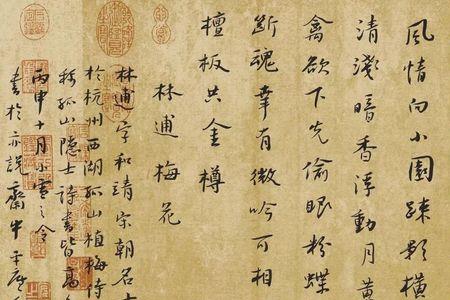 風情向小園疎影橫
清淺暗香浮動月黃
禽欲下先偷眼粉蝶
斷魂幸有微吟可相
檀板共金樽
林逋梅花
林逋字和靖宋朝名
於杭州西湖孤山植梅
稱孤山隱士詩書皆高
丙申十月小雪之令
書於亦說齋